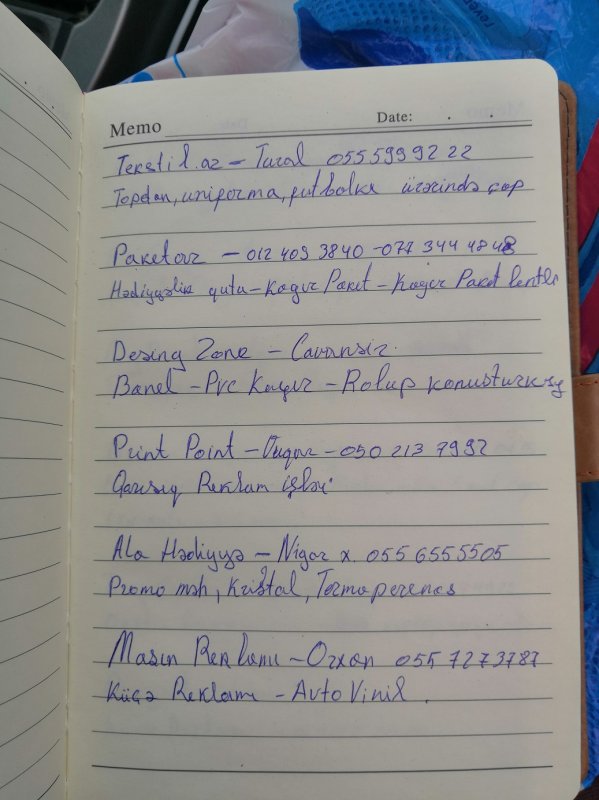 Memo Date: . .
Tekstil.az - Tural 055 599 92 22
Topdan, uniforma, futbolka üzərində çap
Paketaz - 012 409 3840 - 077 344 48 48
Hədiyyəlik qutu - Kağız Paket - Kağız Paket lentli
Desing Zone - Cavanşir.
Banel - Pvc Kağız - Rolup
Print Point - Vuqar - 050 213 7992
Qarışıq Reklam işləri
Ala Hədiyyə - Nigar x. 055 6555505
Promo məh, Kristal, Termoperenos
Maşın Reklamı - Orxan 055 7273787
Küçə Reklamı - Avto Vinil.